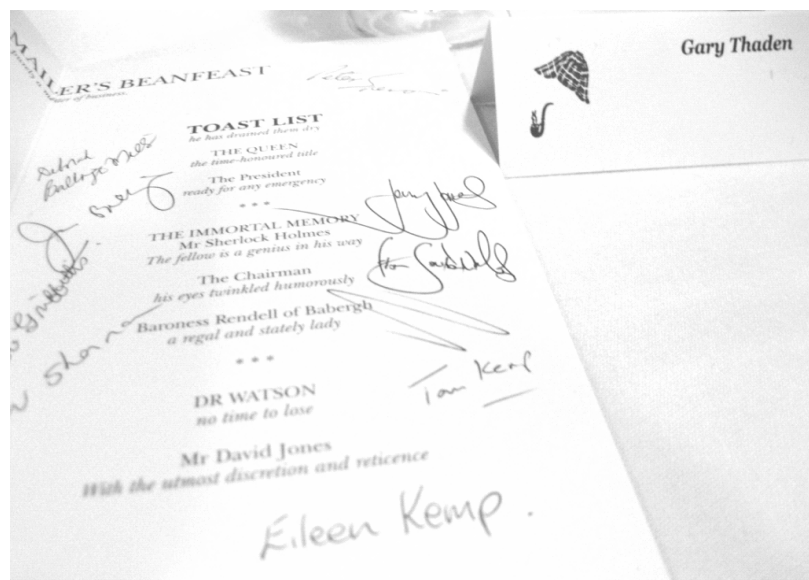 MAILER'S BEANFEAST
of business.
TOAST LIST
he has drained them dry
THE QUEEN
the time-honoured title
The President
ready for any emergency
* * *
THE IMMORTAL MEMORY
Mr Sherlock Holmes
The fellow is a genius in his way
The Chairman
his eyes twinkled humorously
Baroness Rendell of Babergh
a regal and stately lady
* * *
DR WATSON
no time to lose
Mr David Jones
With the utmost discretion and reticence
Deborah
Griffiths
Sharma
Tom Kemp
Eileen Kemp.
Gary Thaden